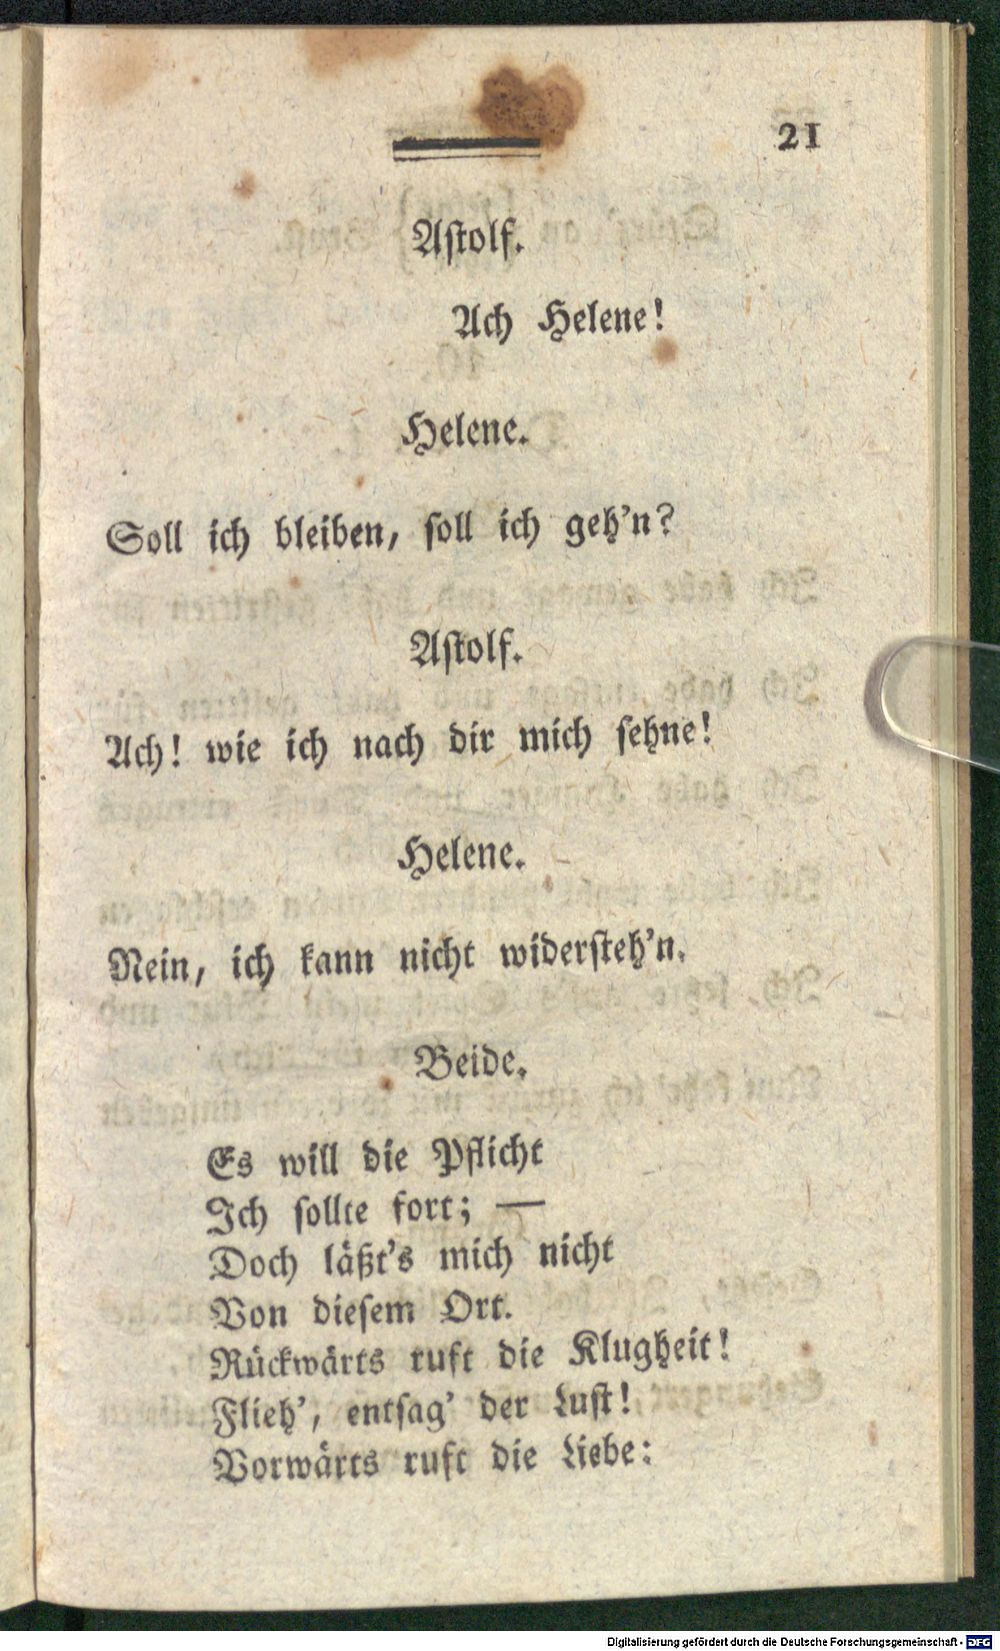 21
Aſtolf.
Ach Helene!
Helene.
Soll ich bleiben, ſoll ich geh’n?
Aſtolf.
Ach! wie ich nach dir mich ſehne!
Helene.
Nein, ich kann nicht widerſteh’n.
Beide.
Es will die Pflicht
Ich ſollte fort; —
Doch läßt’s mich nicht
Von dieſem Ort.
Rückwärts ruft die Klugheit!
Flieh’, entſag’ der Luſt!
Vorwärts ruft die Liebe:
Digitalisierung gefördert durch die Deutsche Forschungsgemeinschaft - DFG